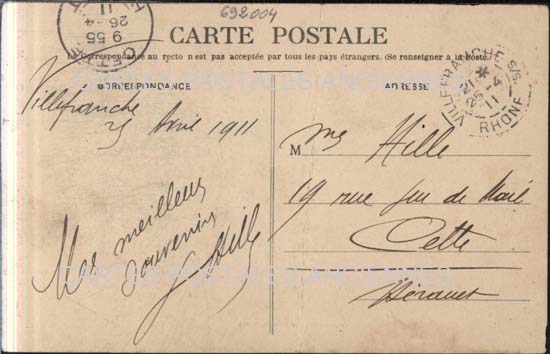 692004
CARTE POSTALE
La Correspondance au recto n'est pas acceptée par tous les pays étrangers. (Se renseigner à la Poste)
CARTES POSTALES ANCIENNES
CORRESPONDANCE
ADRESSE
9 55
26-4
11
CETTE
VILLEFRANCHE S/S.
RHONE
25 - 4
11
Villefranche
25 Avril 1911
Mes meilleurs
souvenirs
G Hille
M me Hille
19 rue Jeu de Mail
Cette
Hérault
CARTES POSTALES ANCIENNES